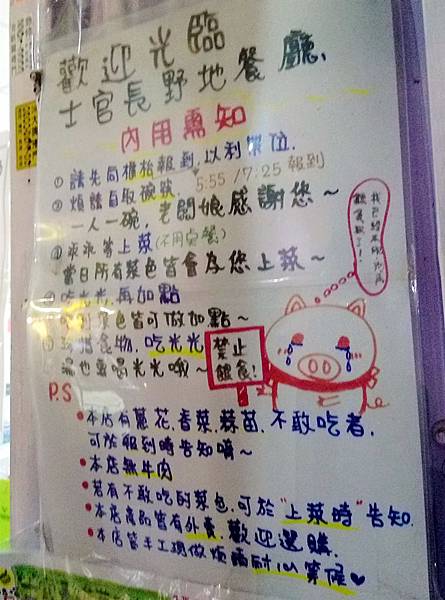 歡迎光臨
士官長野地餐廳
內用需知
① 請先向櫃檯報到,以利帶位.
5:55 / 7:25 報到
② 煩請自取碗筷
一人一碗,老闆娘感謝您~
③ 乖乖等上菜(不用點餐)
當日所有菜色皆會為您上菜~
吃光光,再加點
色皆可做加點~
食物,吃光光
湯也要喝光光哦~
禁止
餵食!
P.S
•本店有蔥花.香菜.蒜苗.不敢吃者.
可於報到時告知唷~
•本店無牛肉
•若有不敢吃的菜色,可於"上菜時"告知.
•本店商品皆有外賣.歡迎選購.
•本店皆手工現做煩請耐心等候♥